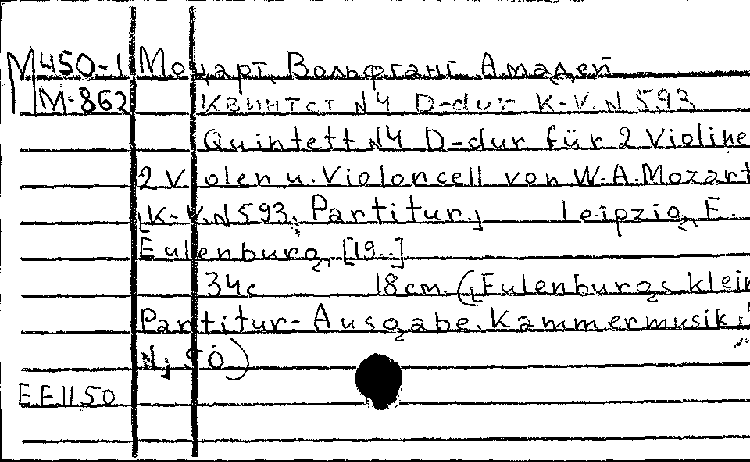 М450-1 Моцарт, Вольфганг Амадей
М-862 Квинтет N4 D-dur K-V.N593
Quintett N4 D-dur für 2 Violine
2 Violen u. Violoncell von W.A.Mozart
K-V.N593. Partitur, Leipzig, E.
Eulenburg, [19..]
34c 18cm (Eulenburgs klein
Partitur-Ausgabe. Kammermusik
N, 50)
EE1150